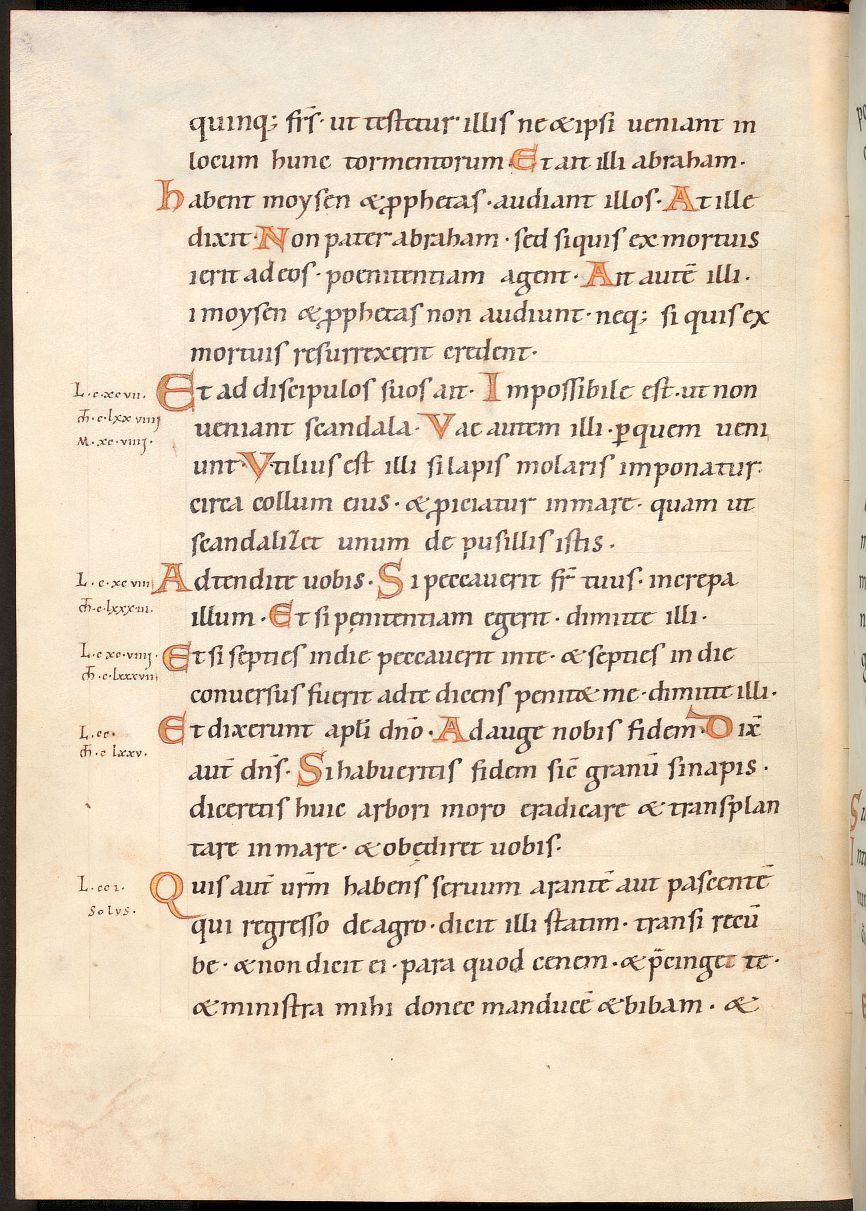 quinq; fr̄s· ut testetur illis ne & ipsi ueniant in
locum hunc tormentorum· Et ait illi abraham·
habent moysen & pphetas· audiant illos· At ille
dixit· Non pater abraham· sed siquis ex mortuis
ierit ad eos· poenitentiam agent· Ait autē illi·
i moysen & pphetas non audiunt· neq; si quis ex
mortuis resurrexerit credent·
L·c·xcvii· Et ad discipulos suos ait· Impossibile est· ut non
m̄·c·lxxviiij ueniant scandala· Vae autem illi· ꝑquem ueni
M·xc·viiij· unt· Vtilius est illi si lapis molaris imponatur
circa collum eius· & ꝓiciatur in mare· quam ut
scandalizet unum de pusillis istis·
L·c·xcviii Adtendite uobis· Si peccauerit fr̄ tuus· increpa
m̄·c·lxxxiii· illum· Et si penitentiam egerit· dimitte illi·
L·c·xc·viiij· Et si septies in die peccauerit in te· & septies in die
m̄·c·lxxxvii conuersus fuerit ad te dicens penit& me· dimitte illi·
L·cc· Et dixerunt apłi dn̄o· Adauge nobis fidem· Dix̄
m̄·c·lxxv· aut̄ dn̄s· Si habueritis fidem sic̄ granū sinapis·
diceretis huic arbori moro eradicare & transplan
tare in mare· & obędiret uobis·
L·cci· Quis aut̄ ur̄m habens seruum arantē aut pascentē
solus· qui regresso de agro· dicit illi statim· transi recū
be· & non dicit ei· para quod cenem· & p̄cinget te·
& ministra mihi donec manducē & bibam· &